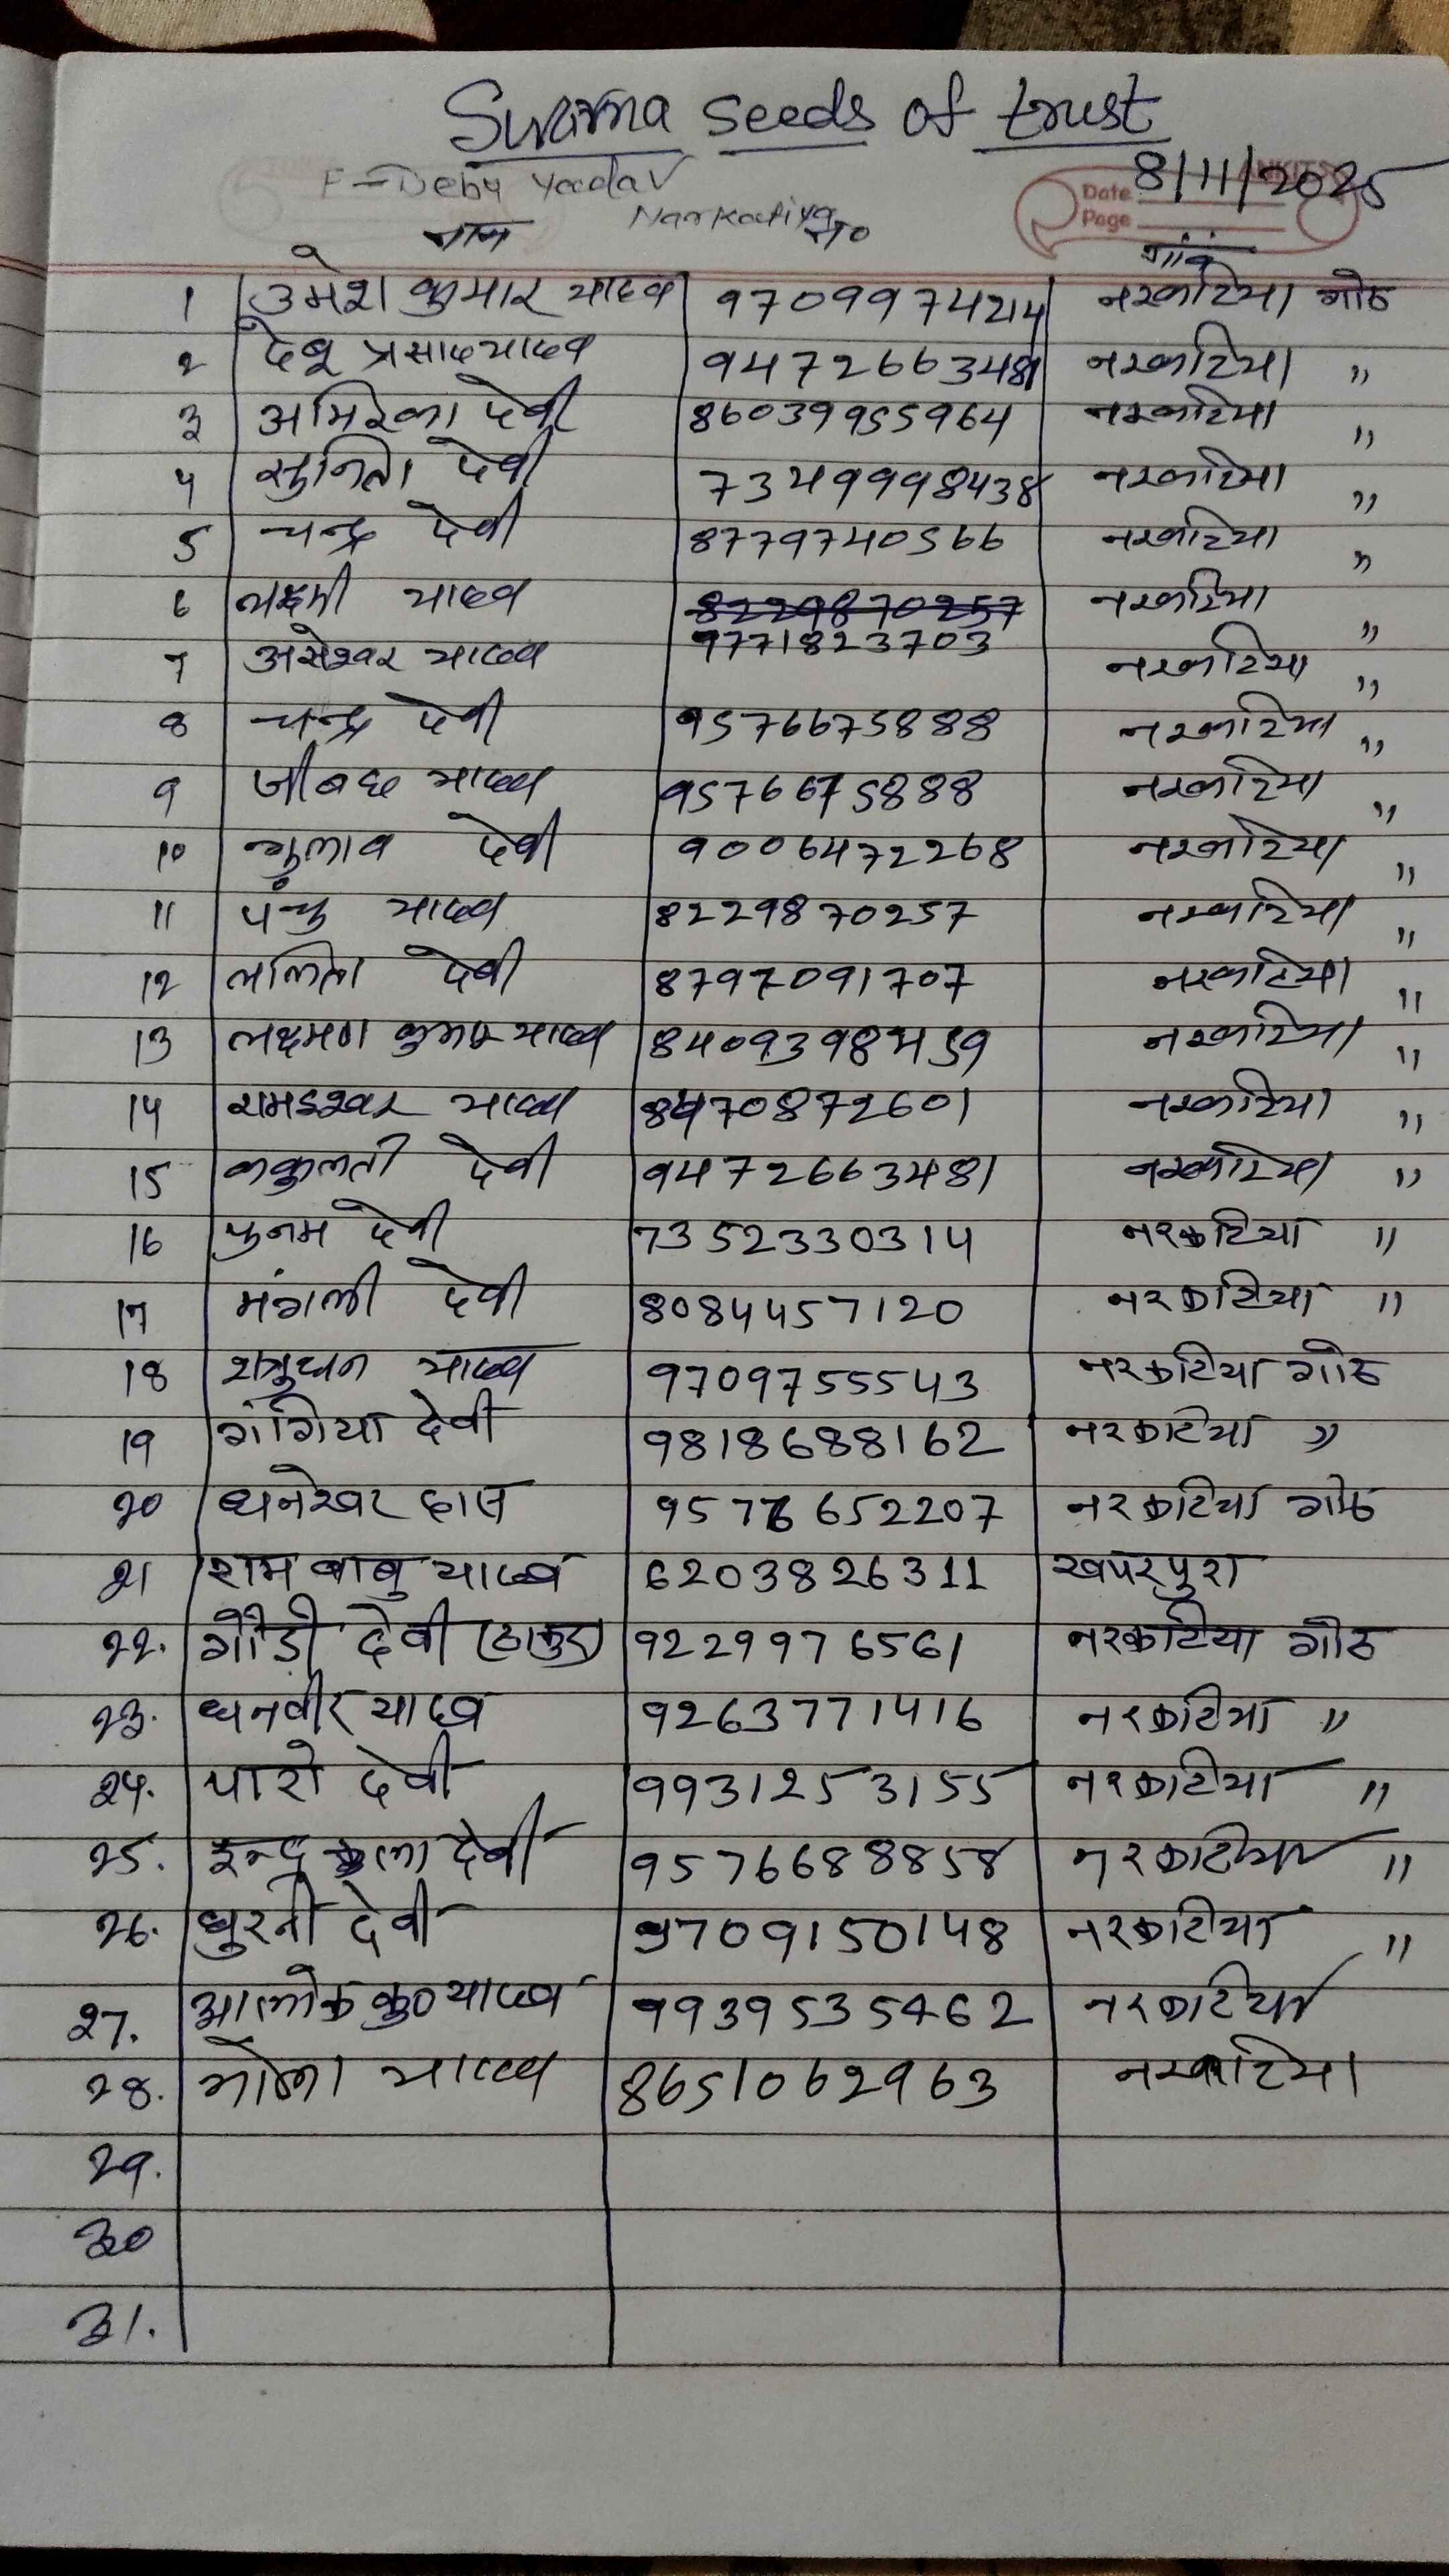 Swarna Seeds of trust
F-Debu Yadav
8/11/2025
Date
Page
Narkatiya
नाम नo गांव
1 उमेश कुमार यादव 9709974214 नरकटिया गोठ
2 देबू प्रसाद यादव 9472663481 नरकटिया "
3 अमिरका देवी 86039955964 नरकटिया "
4 सुनिता देवी 73499998438 नरकटिया "
5 चन्द्र देवी 8779740566 नरकटिया "
6 लक्ष्मी यादव 8229870257 नरकटिया "
9771823703
7 असेश्वर यादव नरकटिया "
8 चन्द्र देवी 9576675888 नरकटिया "
9 जीबछ यादव 9576675888 नरकटिया "
10 गुलाब देवी 9006472268 नरकटिया "
11 पंचु यादव 8229870257 नरकटिया "
12 ललिता देवी 8797091707 नरकटिया "
13 लक्ष्मण कुमार यादव 8409398459 नरकटिया "
14 रामइश्वर यादव 8470872601 नरकटिया "
15 ककुलती देवी 9472663481 नरकटिया "
16 पुनम देवी 7352330314 नरकटिया "
17 मंगली देवी 8084457120 नरकटिया "
18 शत्रुधन यादव 9709755543 नरकटिया गोठ
19 गंगिया देवी 9818688162 नरकटिया "
20 धनेश्वर दास 9576652207 नरकटिया गोठ
21 राम बाबु यादव 6203826311 खपरपुरा
22. गौड़ी देवी (ठाकुर) 9229976561 नरकटिया गोठ
23. धनवीर यादव 9263771416 नरकटिया "
24. पारो देवी 9931253155 नरकटिया "
25. इन्द्र कला देवी 9576688858 नरकटिया "
26. धुरनी देवी 9709150148 नरकटिया "
27. आलोक कु० यादव 9939535462 नरकटिया
28. भोला यादव 8651062963 नरकटिया
29.
30
31.